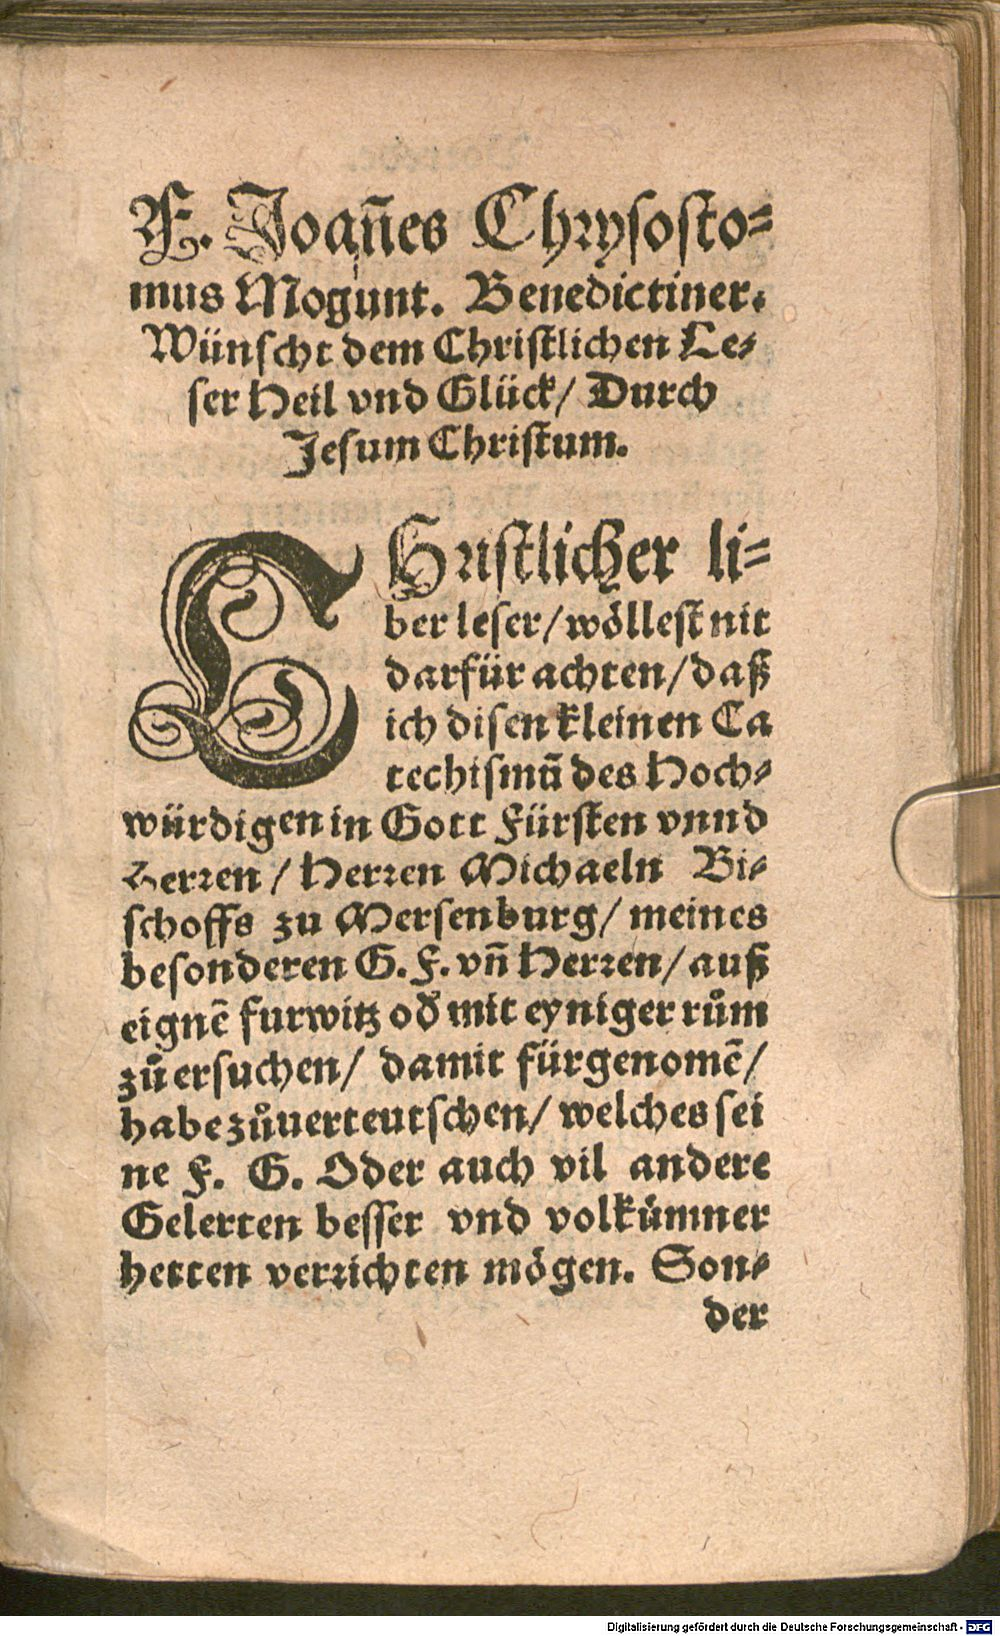 F. Joañes Chrysosto-
mus Mogunt. Benedictiner.
Wünscht dem Christlichen Le-
ser Heil vnd Glück/ Durch
Jesum Christum.
CHristlicher li-
ber leser/ wöllest nit
darfür achten/ daß
ich disen kleinen Ca
techismū des Hoch-
würdigen in Gott Fürsten vnnd
Herren/ Herren Michaeln Bi-
schoffs zu Mersenburg/ meines
besonderen G. F. vñ Herren/ auß
eignē furwitz od̄ mit eyniger rům
zů ersuchen/ damit fürgenomē/
habe zůuerteutschen/ welches sei
ne F. G. Oder auch vil andere
Gelerten besser vnd volkümner
hetten verrichten mögen. Son-
der
Digitalisierung gefördert durch die Deutsche Forschungsgemeinschaft - DFG